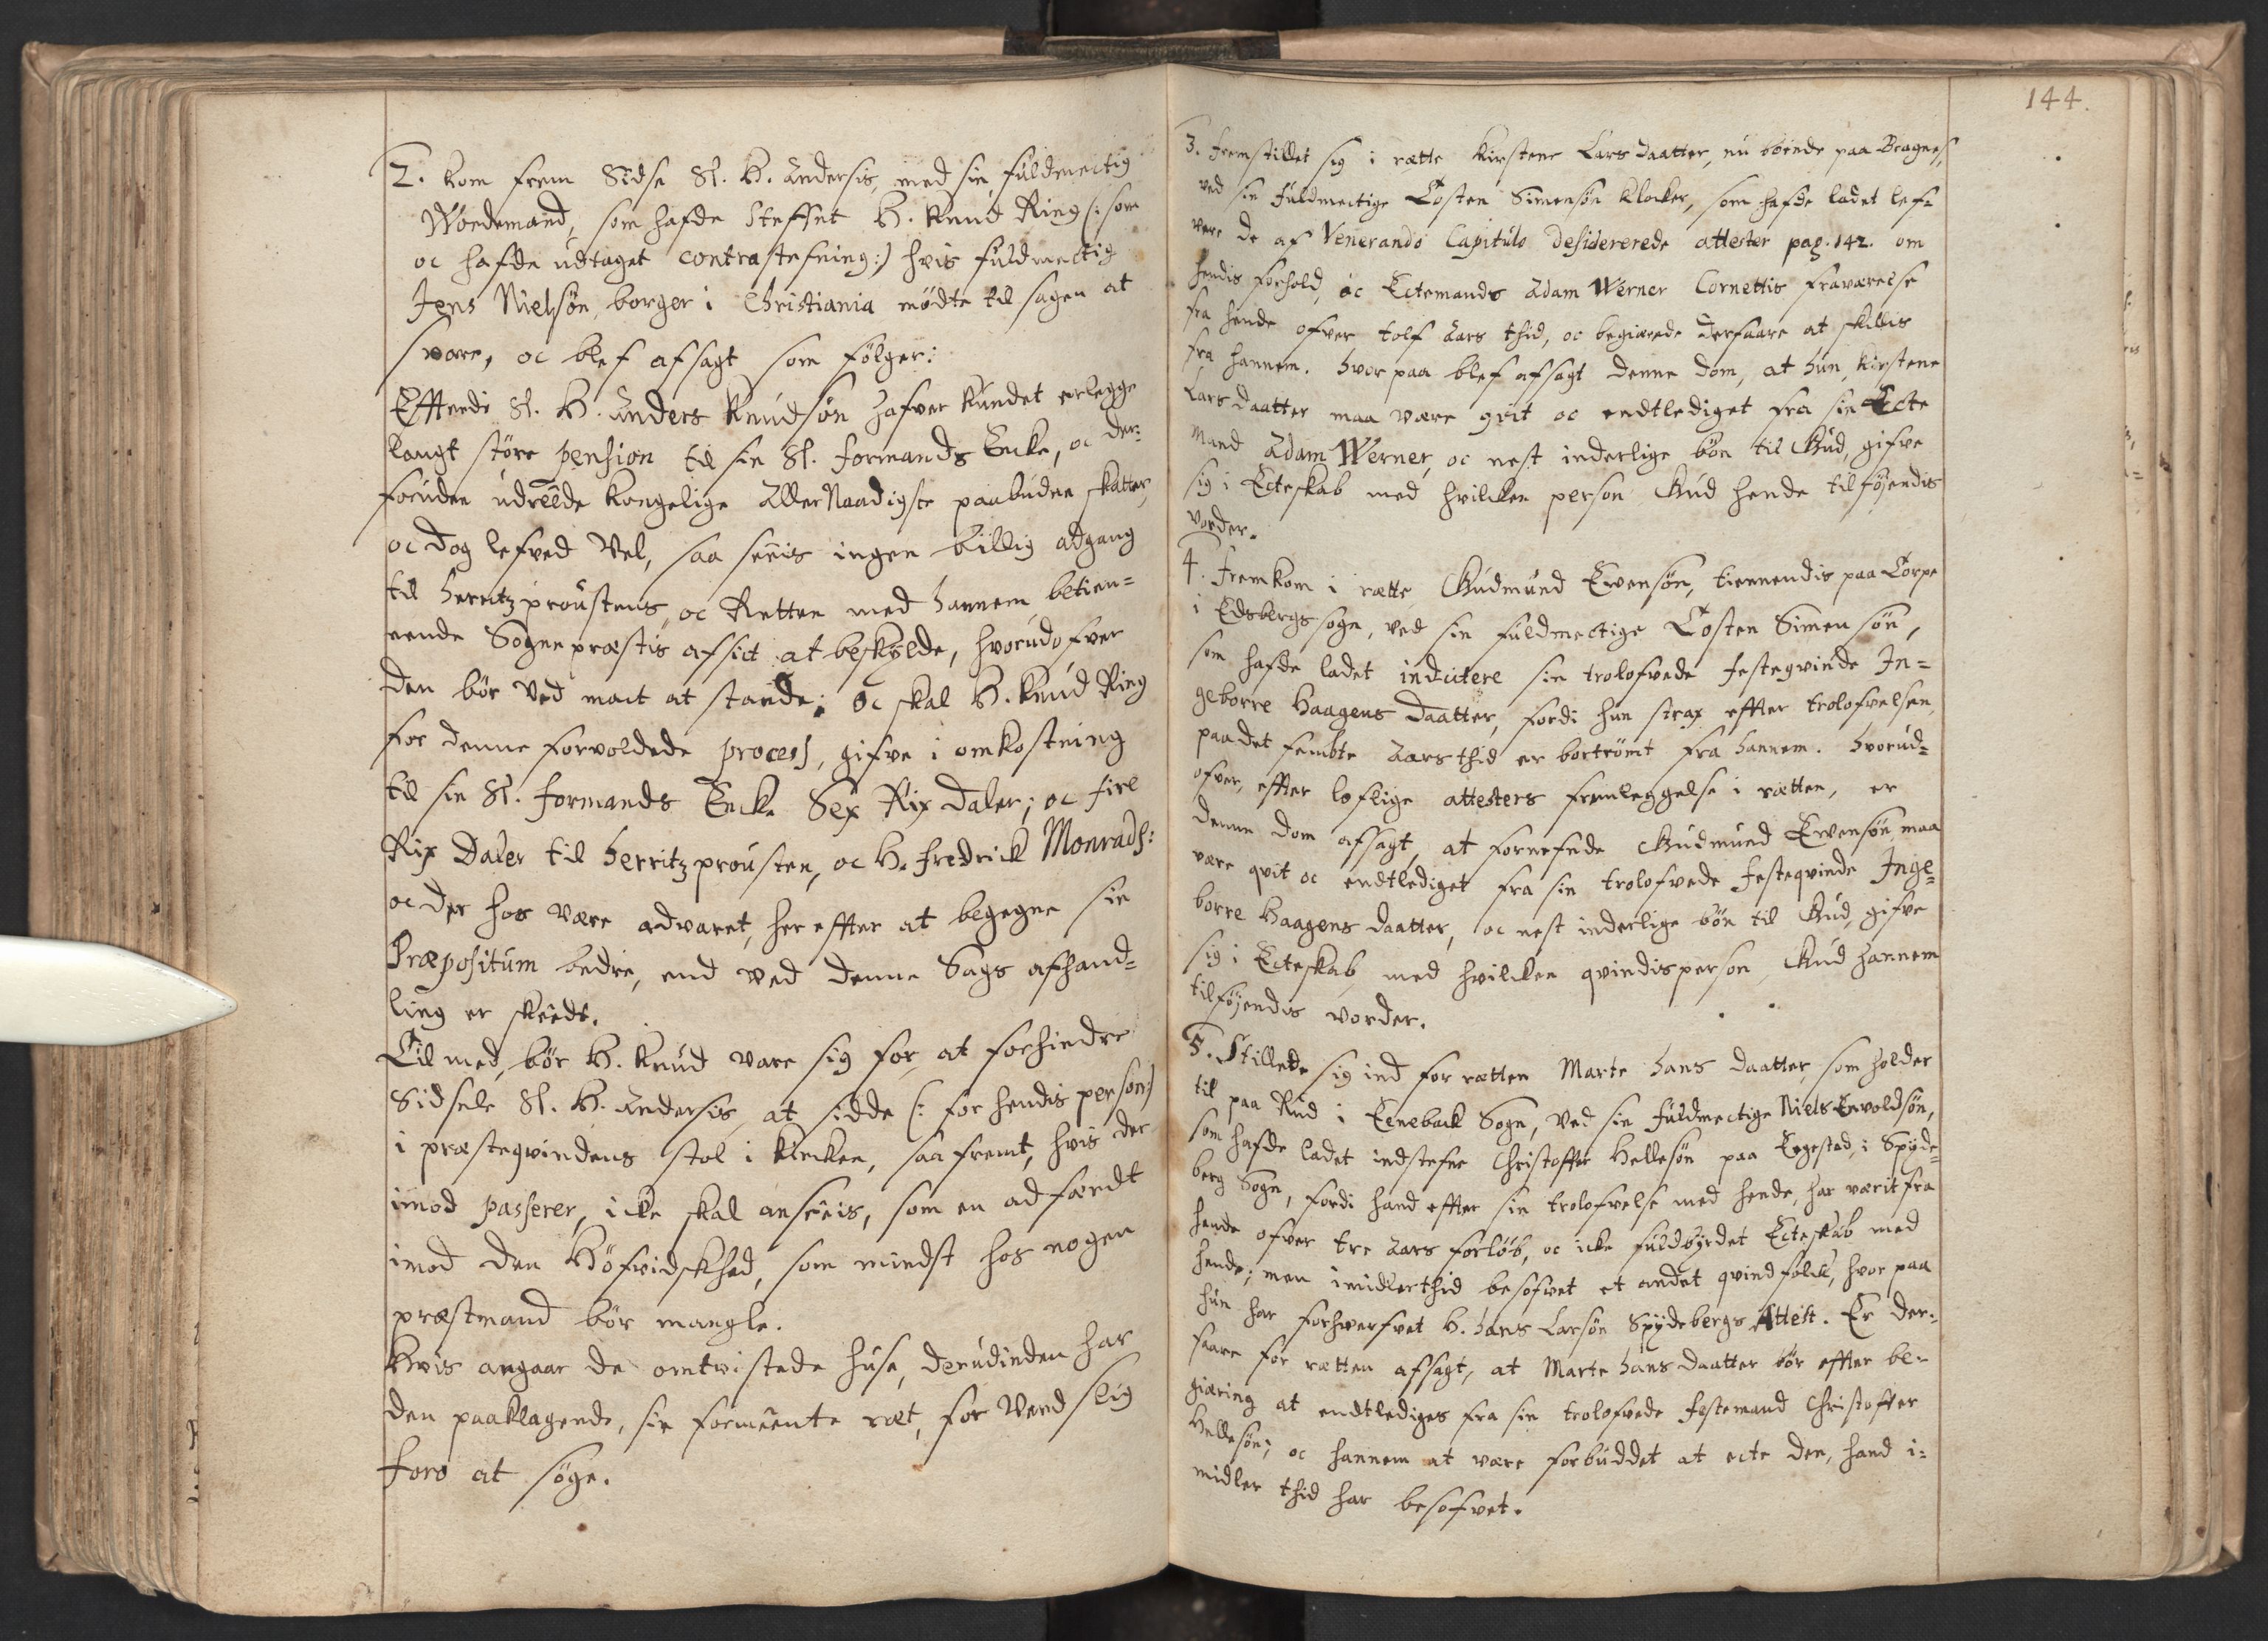 2. kom frem Sidse Sl. H. Andersis, med sin fuldmectig
Woedemand, som hafde steffnet H. Knud Ring (: som
oc hafde udtaget contrastefning :) hvis fuldmectig
Jens Nielsøn, borger i Christiania mødte til sagen at
svare, oc blef afsagt som følger:
Efftterdi Sl. H. Anders Knudsøn hafver kundet erlegge
langt störe pension til sin Sl. formands Encke, oc der-
foruden udreede kongelige Aller Naadigste paabudne skatter,
oc dog lefved Vel, saa seeis ingen billig adgang
til herritzproustens, oc Retten med hannem betien=
nende Sogneprestis afsict at beskylde, hvorudofver
den bör ved mact at stande; Oc skal H. Knud Ring
for denne forvoldede process, gifve i omkostning
til sin Sl. formands Encke Sex Rix Daler; oc fire
Rix Daler til herritzprousten, oc H. Fredrick Monrads:
oc der hos være advaret, her effter at begegne sin
Præpositum bedre, end ved denne Sags afhand=
ling er skeedt.
Til med, bör H. Knud vare sig for, at forhindre
Sidsele Sl. H. Andersis, at sidde (: for hendis person :)
i præsteqvindens stol i kircken, saa fremt, hvis der
imod passerer, icke skal anseeis, som en adfærdt
imod den Höfvidskhed, som mindst hos nogen
præstmand bör mangle.
Hvis angaar de omtvistede huse, derudinden har
den paaklagende, sin formeente ræt, for Verdslig
foro at söge.
144.
3. Fremstillet sig i rette Kirstene Lars Daatter, nu boende paa Bragnes,
ved sin fuldmectige Tosten Simensøn Klocker, som hafde ladet lef=
vere de af Venerando Capitulo desidererede attester pag. 142. om
hendis forhold, oc Ectemands Adam Werner Cornettis fraværelse
fra hende ofver tolf Aars thid, oc begiærede derfaare at skillis
fra hannem. hvor paa blef afsagt denne dom, at hun, Kirstene
Lars Daatter maa være qvit oc endtlediget fra sin Ecte
Mand Adam Werner, oc nest inderlige bön til Gud, gifve
sig i Ecteskab med hvilcken person Gud hende tilföjendis
vorder.
4. Fremkom i rætte, Gudmund Evensøn, tiennendis paa Torpe
i Edsbergs sogn, ved sin fuldmectige Tosten Simensøn,
som hafde ladet indcitere sin trolofvede festeqvinde In=
geborre Haagens Daatter, fordi hun strax effter trolofvelsen,
paa det fembte Aars thid er bortrömt fra hannem. hvorud=
ofver, effter loflige attesters fremleggelse i rætten, er
denne dom afsagt, at fornefnde Gudmund Evensøn maa
være qvit oc endtlediget fra sin trolofvede festeqvinde Inge=
borre Haagens daatter, oc nest inderlige bön til Gud, gifve
sig i Ecteskab, med hvilcken qvindisperson Gud hannem
tilföjendis vorder.
5. Stillede sig ind for rætten Marte Hans Daatter, som holder
til paa Rud i Eeneback Sogn, ved sin fuldmectige Niels Envoldsøn,
som hafde ladet indstefne Christoffer Hellesøn paa Egestad, i Spyde=
berg Sogn, fordi hand effter sin trolofvelse med hende, har værit fra
hende ofver tre Aars forlöb, oc icke fuldbyrdet Ecteskab med
hende; men imidlerthid besofvet et andet qvindfolck, hvor paa
hun har forhverfvet H. Hans Larsøn Spydebergs Attest. Er der=
faare for rætten afsagt, at Marte Hans daatter bör effter be=
giæring at endtlediges fra sin trolofvede festemand Christoffer
Hellesøn; oc hannem at være forbuddet at ecte den, hand i=
midler thid har besofvet.